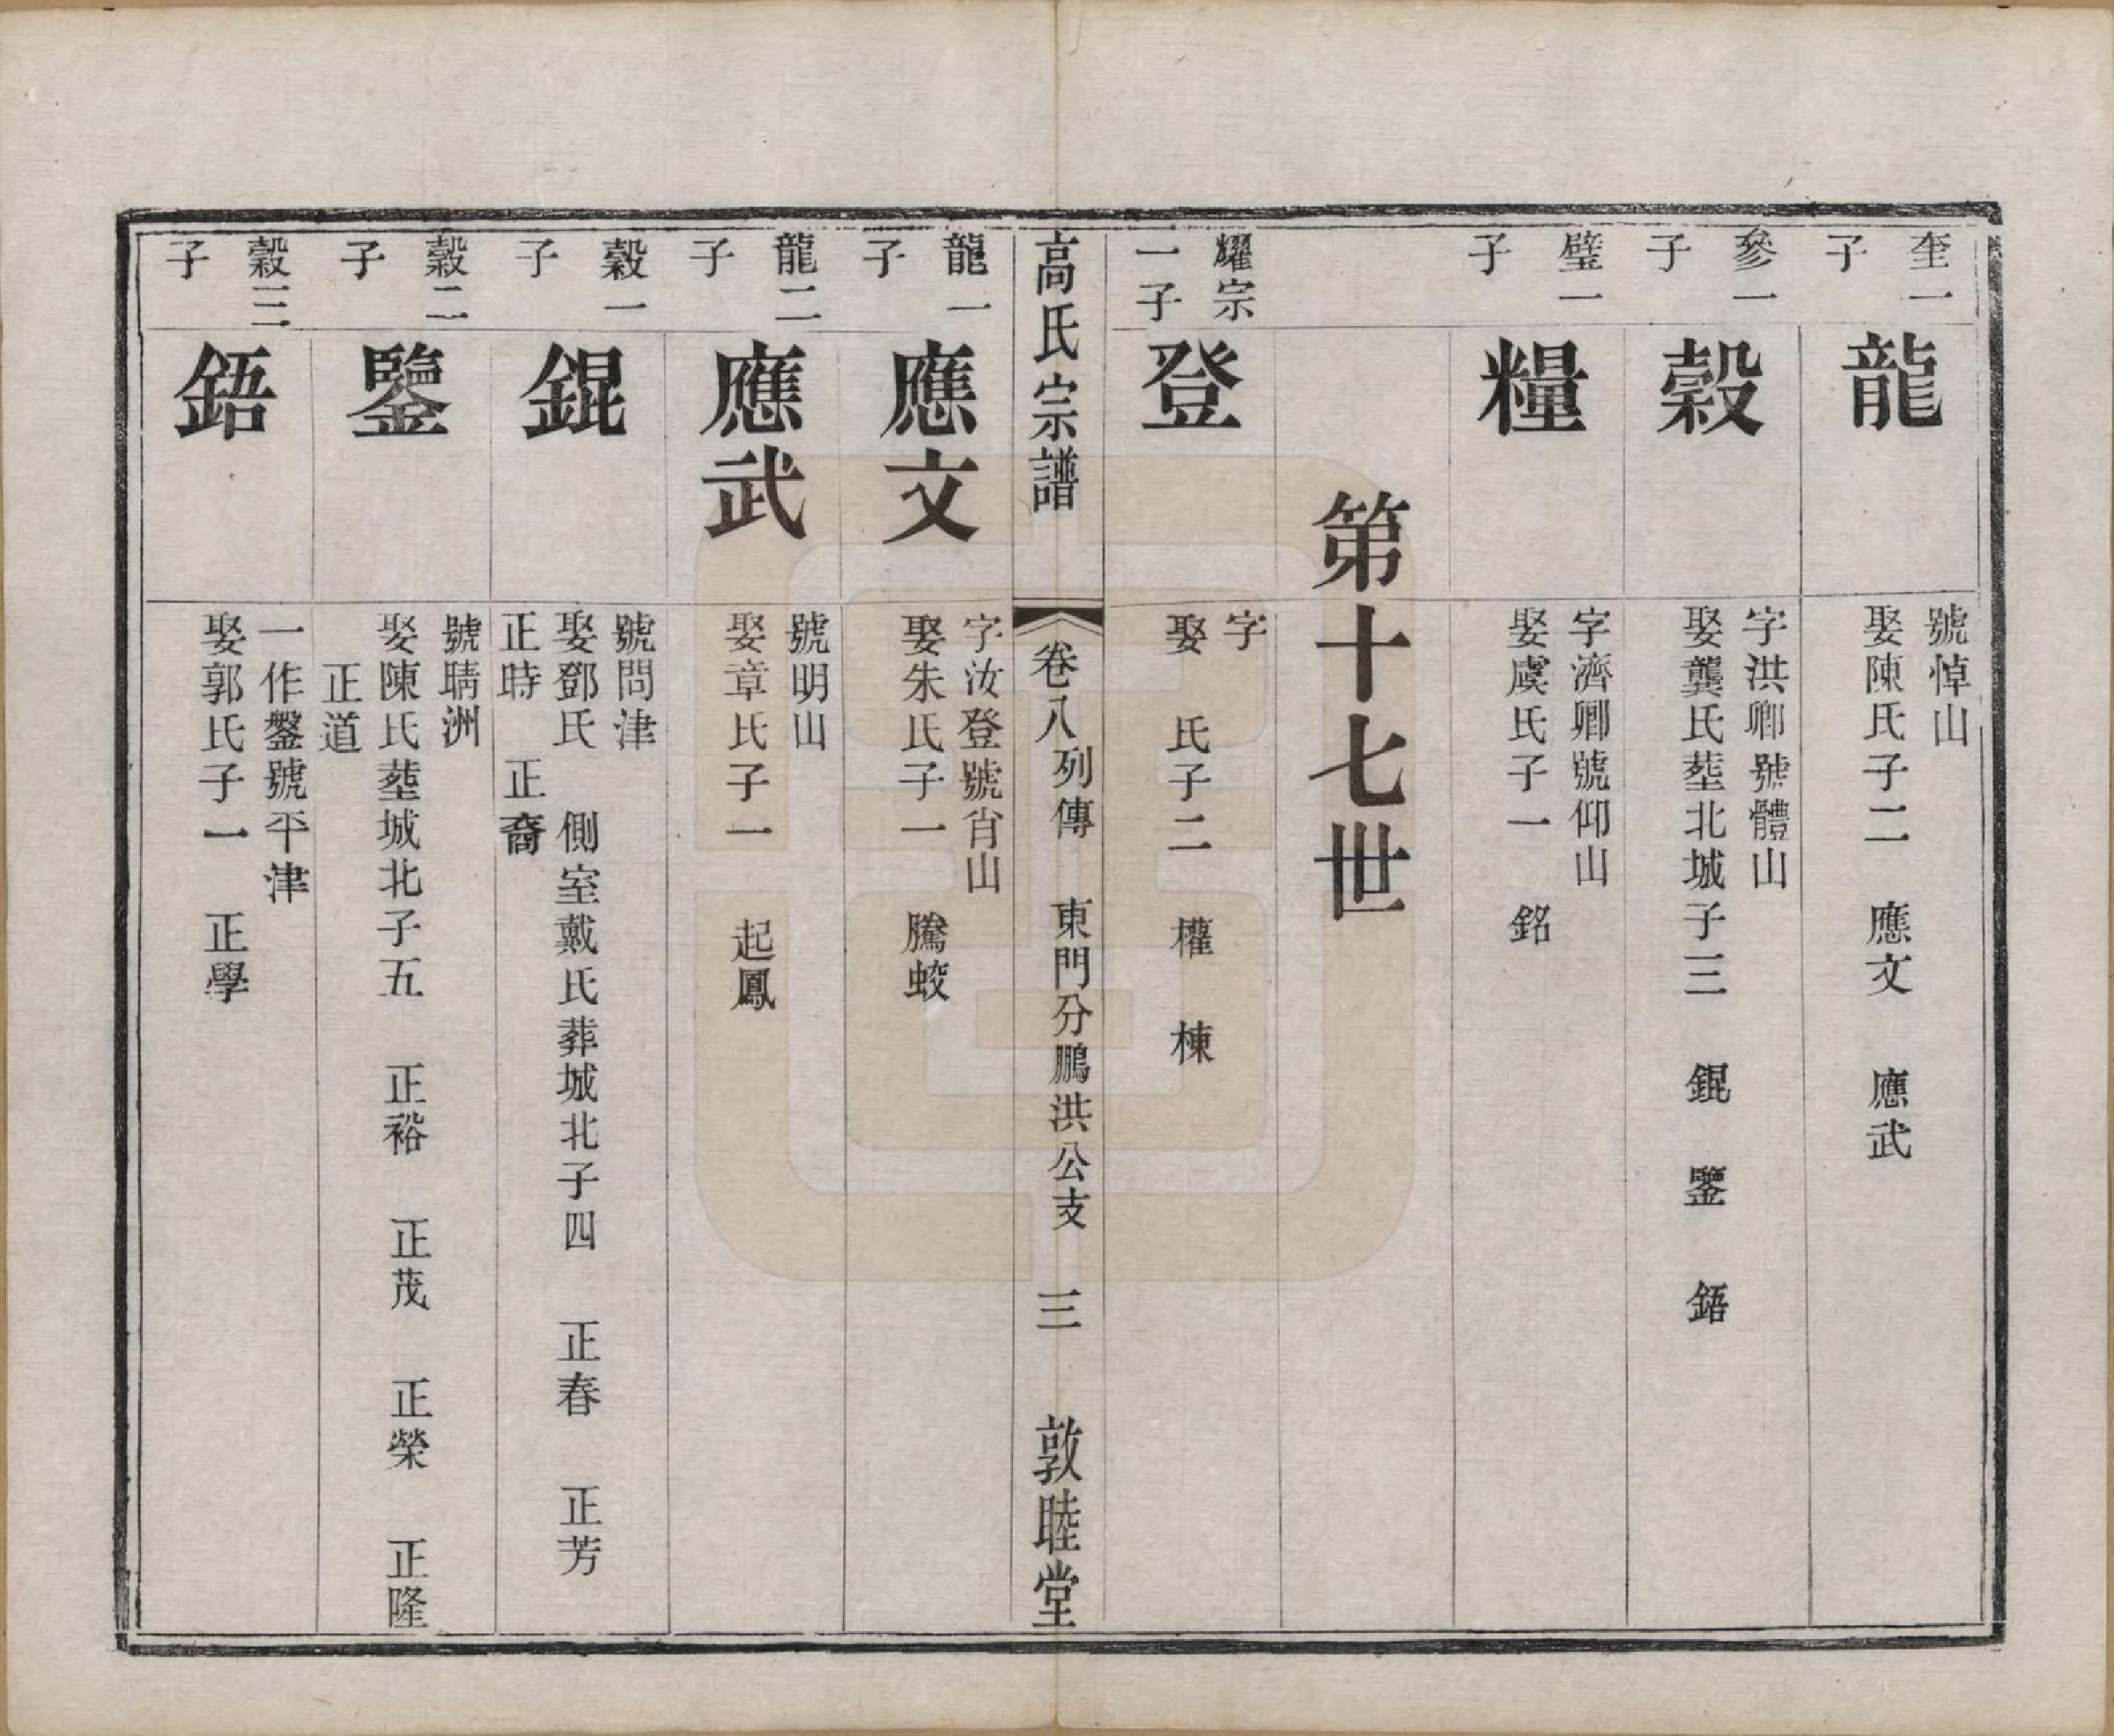 奎一子
龍
號悼山
娶陳氏子二　應文　應武
參一子
穀
字洪卿號體山
娶龔氏塟北城子三　錕　鑒　鋙
璧一子
糧
字濟卿號仰山
娶虞氏子一　銘
第十七世
耀宗一子
登
字
娶　氏子二　權　棟
高氏宗譜
卷八列傳　東門分鵬洪公支　三　敦睦堂
龍一子
應文
字汝登號肖山
娶朱氏子一　騰蛟
龍二子
應武
號明山
娶章氏子一　起鳳
穀一子
錕
號問津
娶鄧氏　側室戴氏葬城北子四　正春　正芳
正時　正裔
穀二子
鑒
號晴洲
娶陳氏塟城北子五　正裕　正茂　正榮　正隆
正道
穀三子
鋙
一作鏧號平津
娶郭氏子一　正學